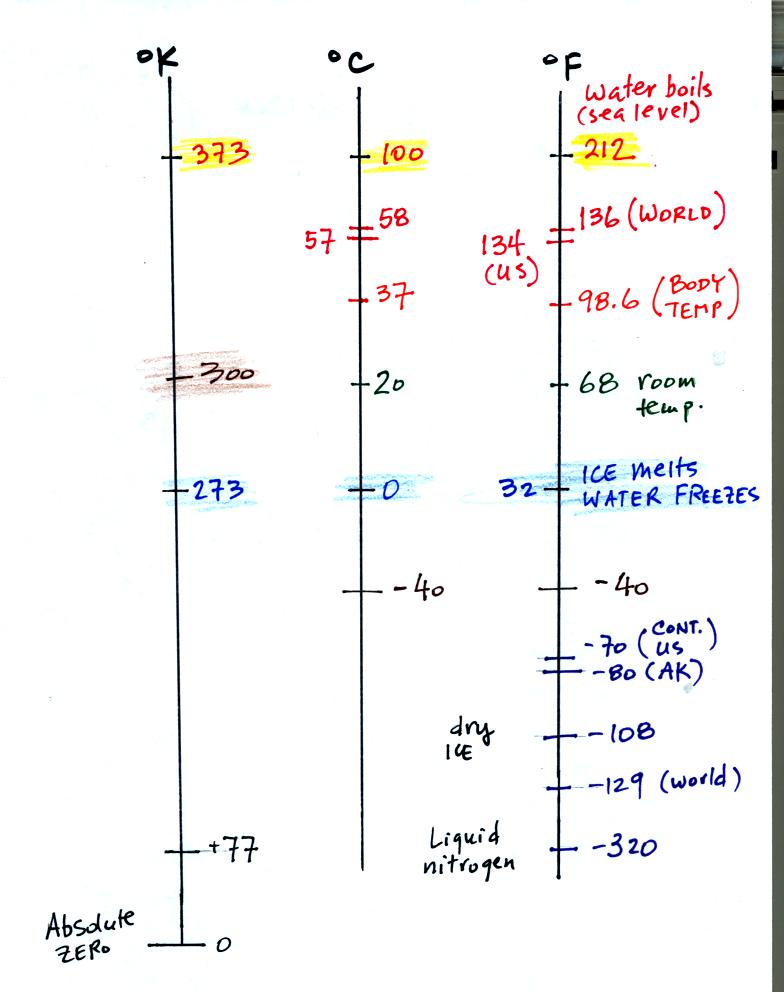 °K
°C
°F
water boils
(sea level)
373
100
212
58
136 (WORLD)
57
134
(US)
37
98.6 (BODY
TEMP)
300
20
68 room
temp.
273
0
32
ICE melts
WATER FREEZES
-40
-40
-70 (CONT.
US)
-80 (AK)
dry
ICE
-108
-129 (world)
+77
Liquid
nitrogen
-320
Absolute
ZERO
0